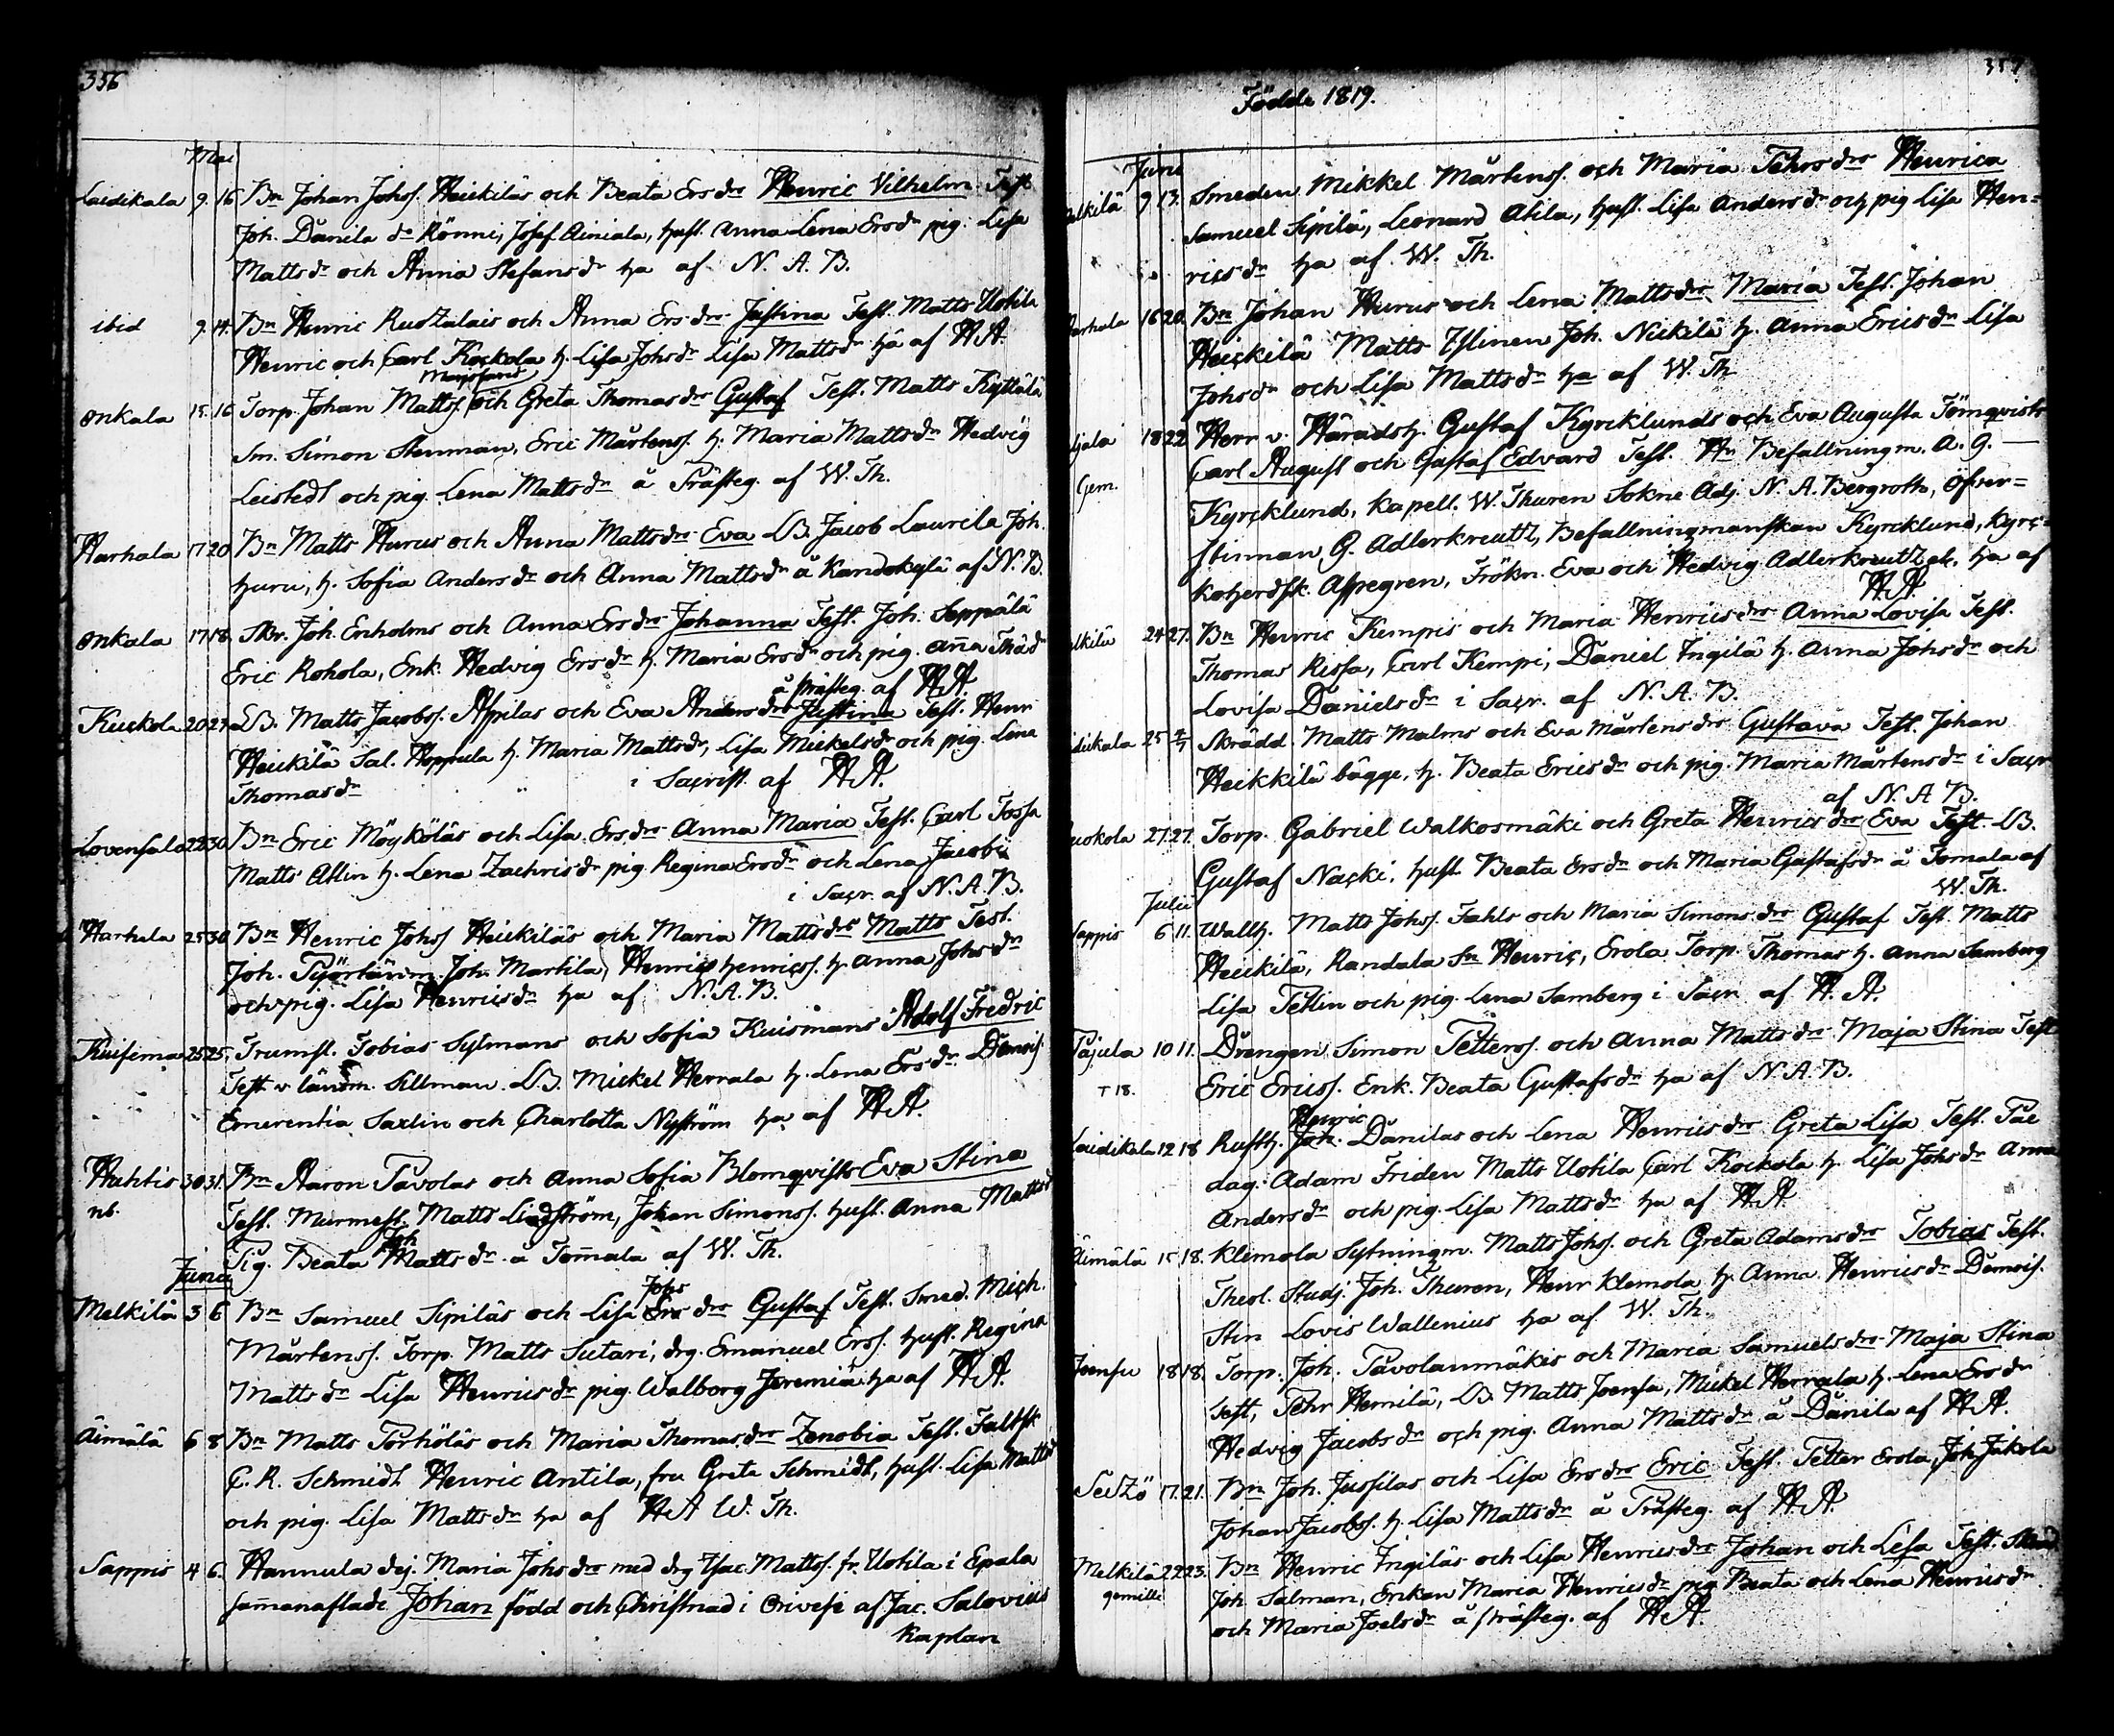 356
Maj
Laidikala 9. 16 Bn Johan Johss. Heickiläs och Beata Ersdrs Henric Vilhelm Test.
Joh. Danila dr Könni, Josef Ainiala, hust. Anna Lena Ersdr pig. Lisa
Mattsdr och Anna Stefansdr ha af N. A. B.
ibid 9. 14. Bn Henric Ruotzalais och Anna Ersdrs Justina Test. Matts Uotila
Henric och Carl Kockola h. Lisa Johsdr Lisa Mattsdr ha af HA.
Onkala 15. 16 Torp. Johan Mattss. och Greta Thomasdrs Gustaf Test. Matts Kyttälä
Sm. Simon Stenman, Eric Mårtenss. h. Maria Mattsdr Hedvig
Leistedt och pig. Lena Mattsdr å Prästeg. af W. Th.
Harhala 17 20 Bn Matts Hurus och Anna Mattsdrs Eva LB. Jacob Laurila Joh.
Huru, h. Sofia Andersdr och Anna Mattsdr å Kandokylä af N. B.
Onkala 17 18. Skr. Joh. Enholms och Anna Ersdrs Johanna Test. Joh. Seppälä
Eric Rohola, Enk. Hedvig Ersdr h. Maria Ersdr och pig. Anna
å Prästeg. af HA
Kuckola 20 27 LB. Matts Jacobss. Aspilas och Eva Andersdrs Justina Test. Henr
Heickilä Sal. Hoppula h. Maria Mattsdr, Lisa Mickelsdr och pig. Lena
Thomasdr i Sacrist. af HA.
Lovensalo 22 30 Bn Eric Möyköläs och Lisa Ersdrs Anna Maria Test. Carl Tossa
Matts Alin h. Lena Zachrisdr pig. Regina Ersdr och Lena Jacobi
i Sacr. af N. A. B.
Harhala 25 30 Bn Henric Johss Heickiläs och Maria Mattsdrs Matts Test.
Joh. Martila, Henric Henricss. h. Anna Johsdr
och pig. Lisa Henricsdr ha af N. A. B.
Kuisema 25 25. Trumsl. Tobias Sylmans och Sofia Kuismans Adolf Fredric
Test v länsm. Sillman LB. Mickel Herrala h. Lena Ersdr Demois.
Emerentia Saxlin och Charlotta Nyström ha af HA.
Hahtis 30 31. Bn Aaron Pavolas och Anna Sofia Blomqvists Eva Stina
nb. Test. Murmest. Matts Lindström, Johan Simonss. hust. Anna Mattsd
Joh
Pig. Beata Mattsdr å Tomala af W. Th.
Junii
Johs
Melkilä 3 6 Bn Samuel Sipiläs och Lisa Ersdrs Gustaf Test. Smed. Mich.
Mårtenss. Torp. Matts Sutari, drg. Emanuel Erss. hust. Regina
Mattsdr Lisa Henricsdr pig. Walborg Jeremiä ha af HA.
Äimälä 6 8 Bn Matts Porhöläs och Maria Thomasdrs Zenobia Test. Faltsk
C. R. Schmidt Henric Antila, fru Greta Schmidt, hust. Lisa Mattsd
och pig. Lisa Mattsdr ha af HA W. Th.
Sappis 4 6. Hannula dej. Maria Johsdrs med drg Isac Mattss. fr. Uotila i Epala
samanaflade Johan född och Christnad i Orivesi af Jac. Salovius
Kaplan
357
Födde 1819.
Junii
elkilä 9 13. Smeden Mikkel Mårtenss. och Maria Pehrsdrs Henrica
Samuel Sipilä, Leonard Alila, hust. Lisa Andersdr och pig Lisa Hen=
ricsdr ha af W. Th.
arhala 16 20. Bn Johan Hurus och Lena Mattsdrs Maria Test. Johan
Heickilä Matts Yllinen Joh. Nickilä h. Anna Ericsdr Lisa
Johsdr och Lisa Mattsdr ha af W. Th
18 22 Herr v. Häradsh. Gustaf Kyrcklunds och Eva Augusta Törnqvists
Gem. Carl August och Gustaf Edvard Test. Hn Befallningm. A. G.
Kyrcklund, Kapell. W. Thuren Sokne Adj. N. A. Bergroth, Öfver=
stinnan G. Adlerkreutz, Befallningmanskan Kyrcklund, Kyrc=
koherdsk. Aspegren, Frökn. Eva och Hedvig Adlerkreutz etc. ha af
HA.
elkilä 24 27. Bn Henric Kempis och Maria Henricsdrs Anna Lovisa Test.
Thomas Rissa, Carl Kempi, Daniel Ingilä h. Anna Johsdr och
Lovisa Danielsdr i Sacr. af N. A. B.
idikala 25 4/7 Skrädd. Matts Malms och Eva Mårtensdrs Gustava Test. Johan
Heikkilä bägge, h. Beata Ericsdr och pig. Maria Mårtensdr i Sacr
af N. A B.
uokola 27. 27. Torp. Gabriel Walkosmäki och Greta Henricsdrs Eva Test. LB.
Gustaf Nacki, hust Beata Ersdr och Maria Gustafsdr å Tomala af
W. Th.
Julii
Sappis 6 11. Wallh. Matts Johss. Fahls och Maria Simonsdrs Gustaf Test. Matts
Heickilä, Randala Sn Henric, Erola Torp. Thomas h. Anna Samberg
Lisa Petlin och pig. Lena Samberg i Sacr. af H. A.
Pajula 10 11. Drengen Simon Petterss. och Anna Mattsdrs Maja Stina Test
T 18. Eric Ericss. Enk. Beata Gustafsdr ha af N. A. B.
Henric
Laidikala 12 18 Rusth. Joh. Danilas och Lena Henricsdrs Greta Lisa Test. Pae
dag. Adam Friden Matts Uotila Carl Kockola h. Lisa Johsdr Anna
Andersdr och pig. Lisa Mattsdr ha af H. A.
Äimälä 15 18. Klemola Sytningm. Matts Johss. och Greta Adamsdrs Tobias Test.
Theol. Studj. Joh. Thuren, Henr Klemola h. Anna Henricsdr Demois.
Stin Lovis Wallenius ha af W. Th.
Joensu 18 18. Torp. Joh. Pavolanmäkis och Maria Samuelsdrs Maja Stina
Test, Pehr Hemilä, LB. Matts Joensu, Mickel Herrala h. Lena Ersdr
Hedvig Jacobsdr och pig. Anna Mattsdr å Danila af HA.
Seitzö 17. 21. Bn Joh. Jussilas och Lisa Ersdrs Eric Test. Petter Erola, Joh Jakola
Johan Jacobss. h. Lisa Mattsdr å Prästeg. af HA.
Melkilä 22 23. Bn Henric Ingiläs och Lisa Henricsdrs Johan och Lisa Test. Skräd
gemelli Joh. Salman, Enkan Maria Henricsdr pig Beata och Lena Henricsdr
och Maria Joelsdr å Prästeg. af HA.